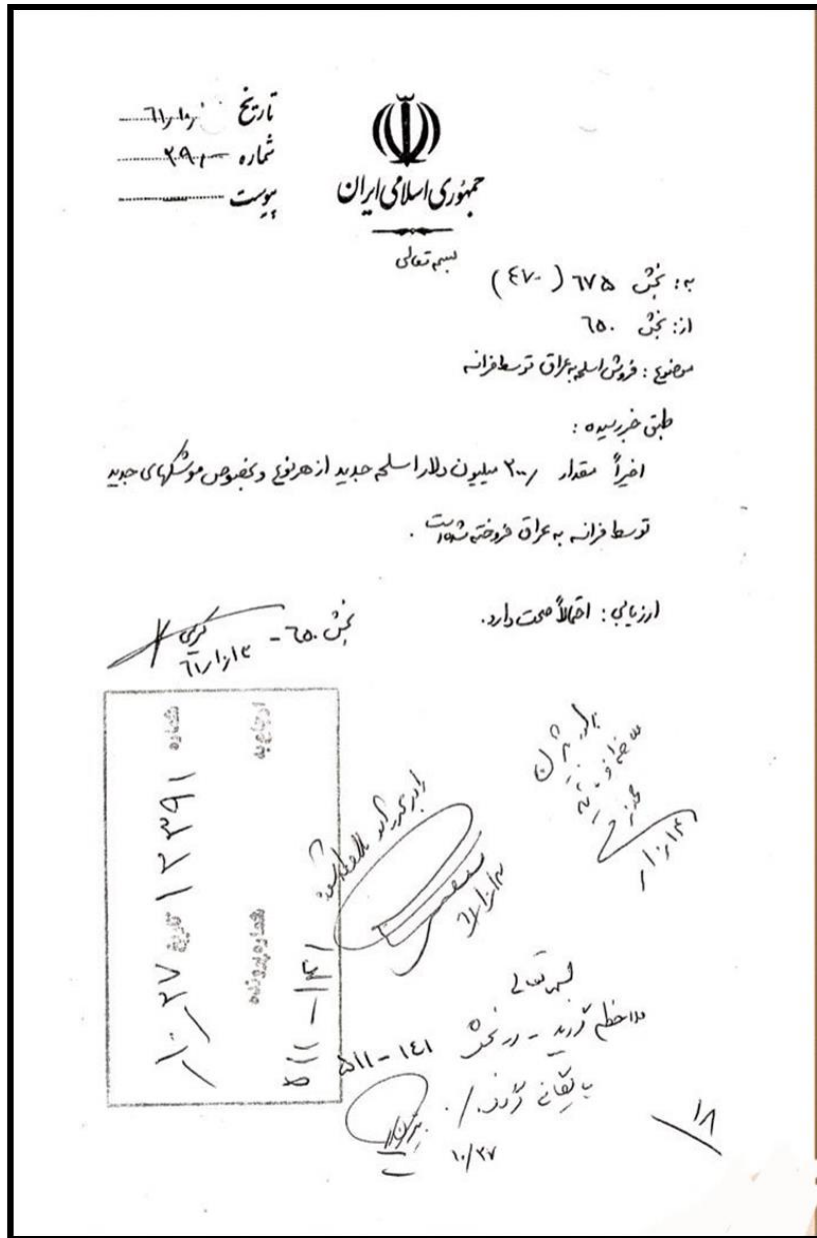 تاریخ
شماره
پیوست
جمهوری اسلامی ایران
بسمه تعالی
به: بخش ۶۷۵ (۴۷۰)
از: بخش ۶۵۰
موضوع: فروش اسلحه به عراق توسط فرانسه
طبق خبر رسیده:
اخیراً مقدار ۲۰۰ میلیون دلار اسلحه جدید از هر نوع و بخصوص موشکهای جدید
توسط فرانسه به عراق فروخته شده است.
ارزیابی: احتمالاً صحت دارد.
بخش ۶۵۰ - کریمی
ارجاع به
شماره ۱۲۳۹۱
تاریخ ۱۰/۲۷
شماره پرونده
۵۱۱-۱۴۱
بسمه تعالی
ملاحظه گردید - در بخش ۵۱۱-۱۴۱
بایگانی گردد.
۱۰/۲۷
۱۸